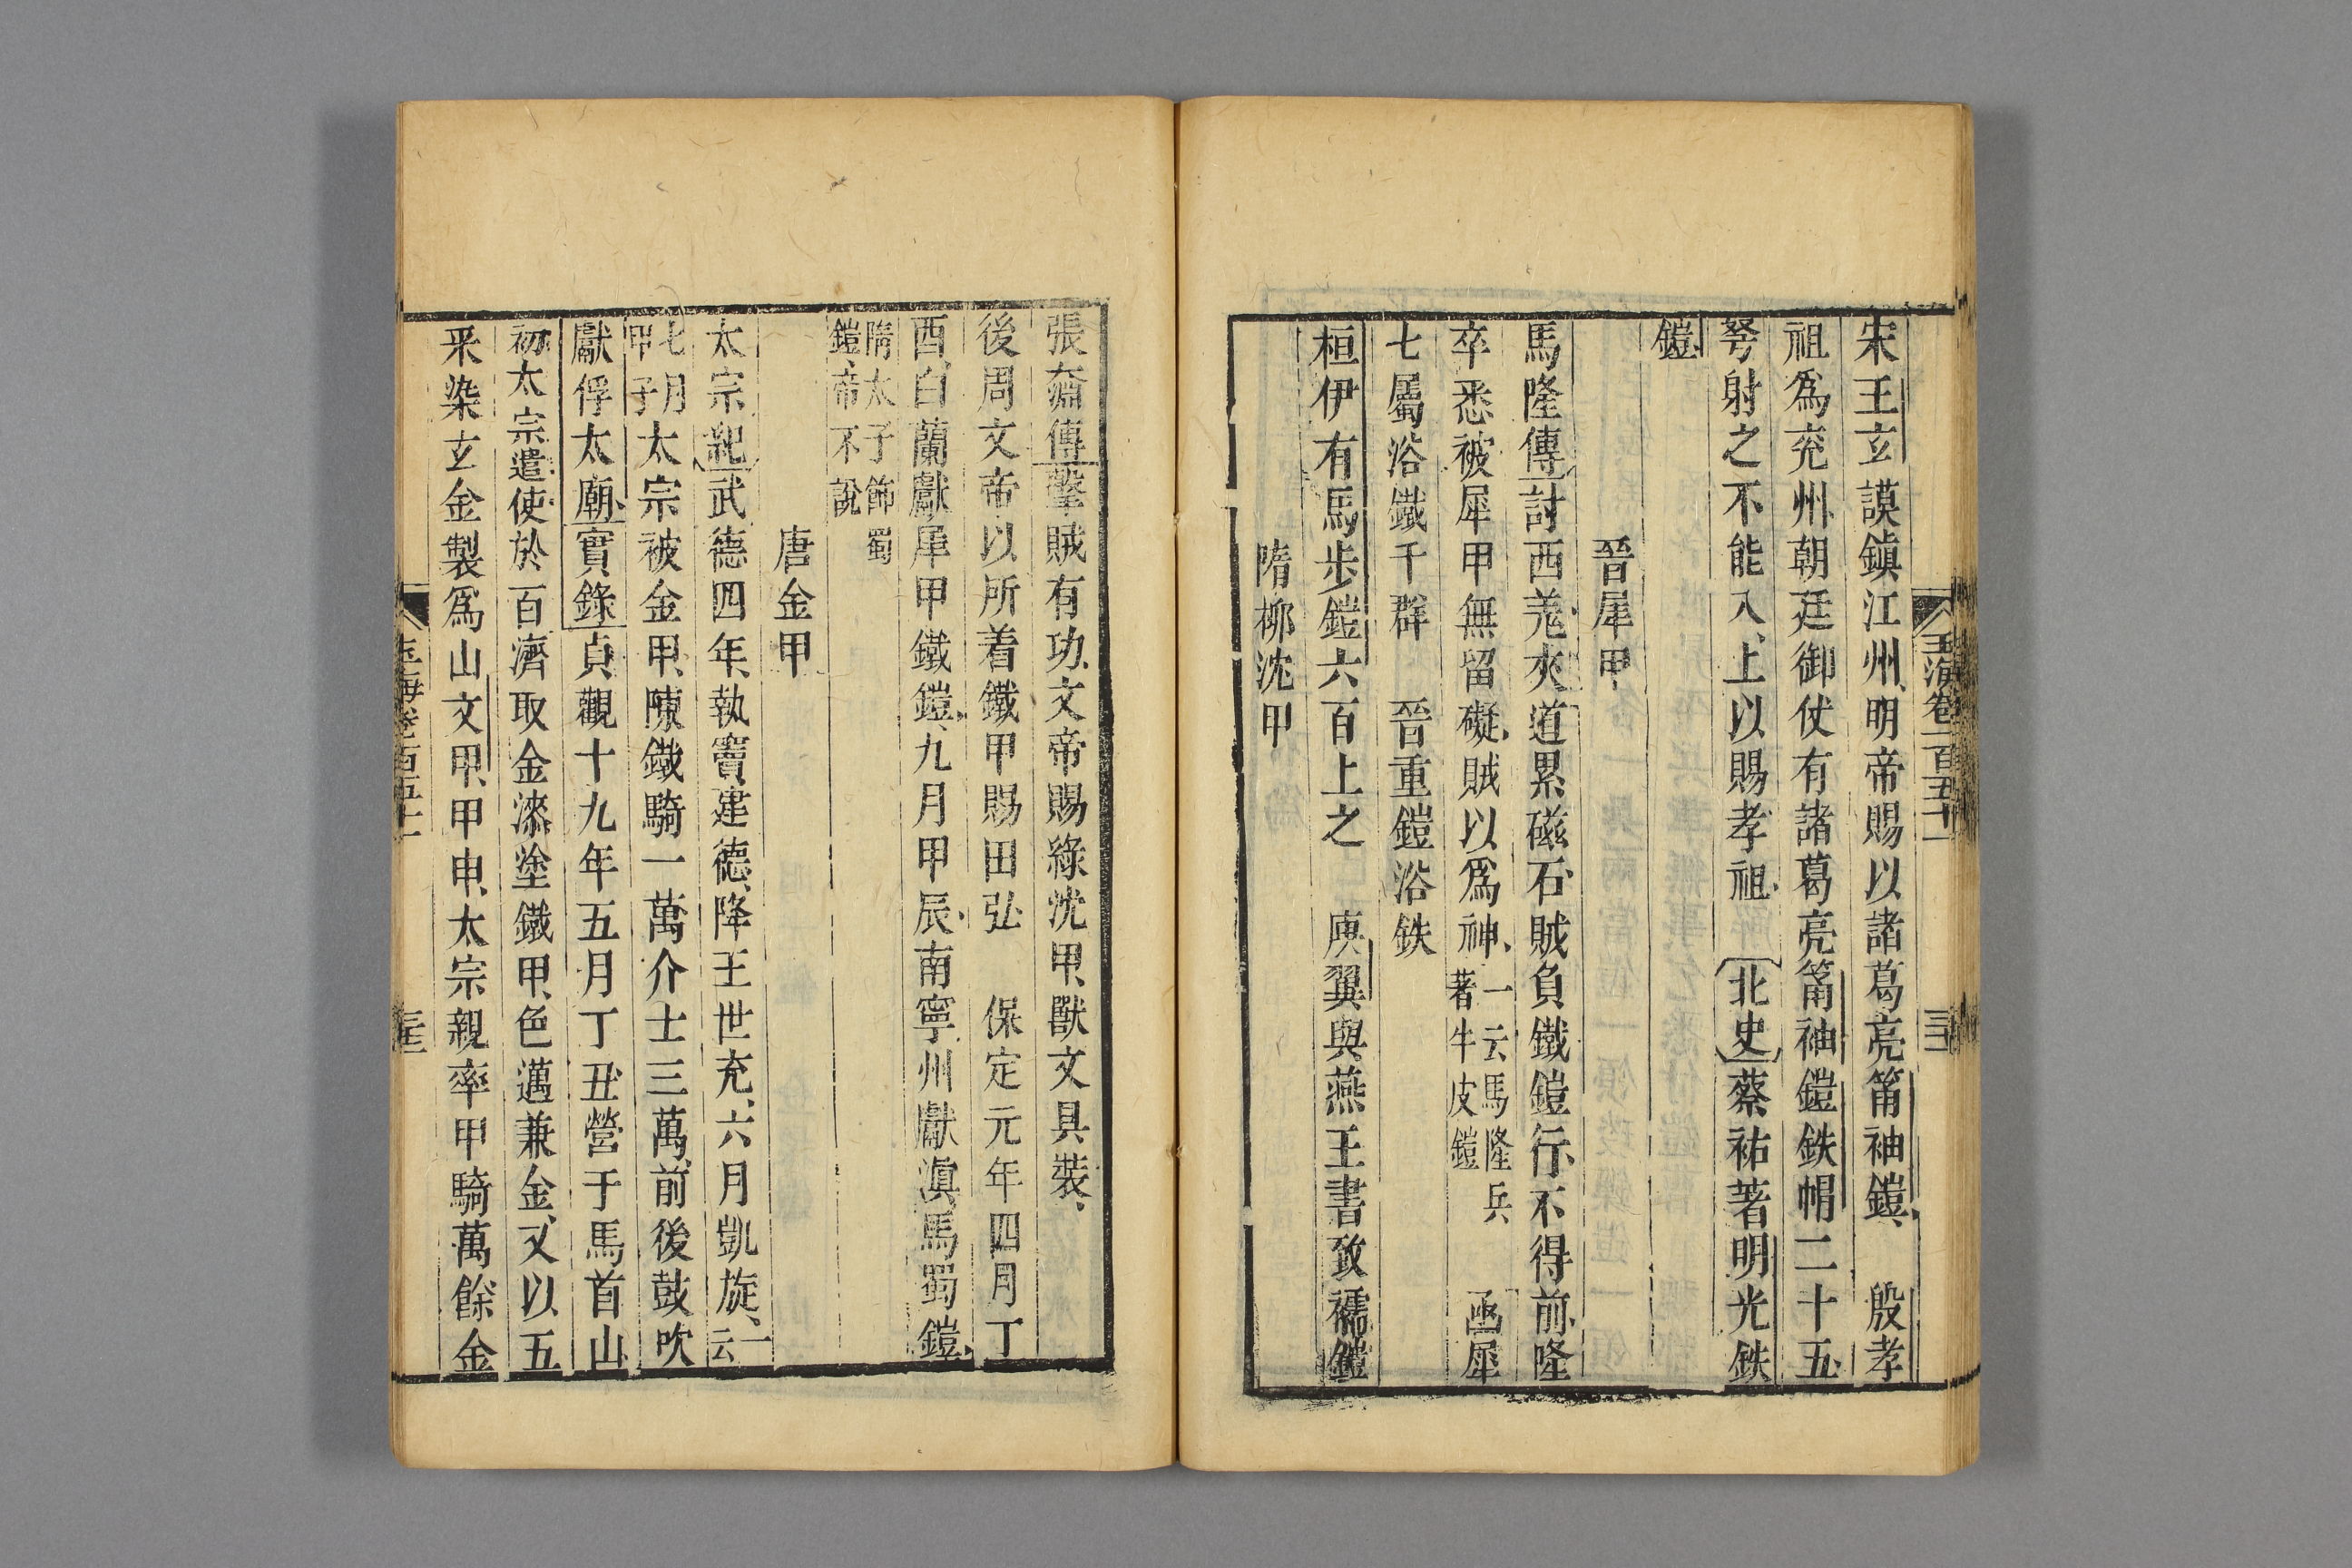 玉海卷一百五十一
宋王玄謨鎮江州明帝賜以諸葛亮筩袖鎧、 殷孝
祖爲兖州朝廷御仗有諸葛亮筩袖鎧鉄帽二十五
弩射之不能入上以賜孝祖 北史蔡祐著明光鉄
鎧
晉犀甲
馬隆傳討西羗夾道累磁石賊負鐵鎧行不得前隆
卒悉被犀甲無留礙賊以爲神、一云馬隆兵著牛皮鎧 函犀
七屬浴鐵千群 晉重鎧浴鉄
桓伊有馬步鎧六百上之 庾翼與燕王書致襦鎧
隋柳沈甲
張奫傳擊賊有功文帝賜綠沈甲、獸文具裝、
後周文帝以所着鐵甲賜田弘 保定元年四月丁
酉、白蘭獻犀甲鐵鎧、九月甲辰南寧州獻滇馬蜀鎧、
隋太子飾蜀鎧、帝不說
唐金甲
太宗紀武德四年、執竇建德、降王世充、六月凱旋、一云
七月甲子太宗被金甲、陳鐵騎一萬介士三萬前後鼓吹
獻俘太廟實錄貞觀十九年五月丁丑營于馬首山
初太宗遣使於百濟取金漆塗鐵甲、色邁兼金、又以五
采染玄金製爲山文甲、甲申、太宗親率甲騎萬餘金
玉海卷百五十一